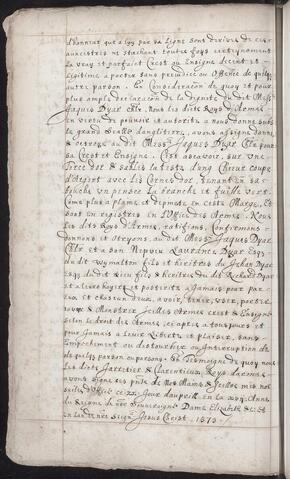 d'honneur que
ancestres ne sachant toutes foys certeynement
le vray et parfaict Crest ou Enseigne decent et
Legitime a porter sans prejudice ou Offence de quelq
autre parson. En Consideracion de quoy et pour
plus ample declaracon de la dignité du dit Mess
Jaques Dyar Chlr, Nous les dits Roys d'Armes
en virtu de pouvoir et autorité a nous donné soubs
le grand Sealle d'angliterre, avons assigné donné
et octroyé au dit Messr Jaques Dyar Chlr pour
sa Crest et Ensigne. C'est ascavoir, sur une
Torce d'or et sables la teste dung Coupé
d'Argent avec les Cornes d'or, tenant en sa
bouche un pensee La branche et fueille vert.
Come plus a plaine est depincte en ceste Marge, et
sont en registres en l'Office des Armes. Nous
les dits Roys d'Armes, ratifions, Confirmons
donnons et Otroyons, au dit Messr Jaques Dyar
Chlr et a son Nepveu Laurence Dyar Esqr
du dit Wymalton fils et heritier du Jehan Dyar
Esqr du dit lieu fils et heritier du dit Richard Dyar
et a leurs hoyres et posteritie a Jamais pour par
eux et chascun deux, avoir, tenir, user, porter
et Monstrer Icelles Armes crest et Ensigne
selon le droit des Armes, icy apres a tousjours et
pour Jamais a leur Liberté et plaiser, sans
Empechement ou distourbier ou Interruption de
de quelq parson ou parsons. En Tesmoigne de quoy nous
les dicts Jarretier et Clarencieux Roys darmes
avons signé ces pñte de Nos Mains et Seelles mis nos
seelles d'Office ce Jour dauprill en la Anne
du Reigne de nre Souveraigne Dame Elizabeth &c Et
en lan de nre Seigr Jesus Christ. 1575.